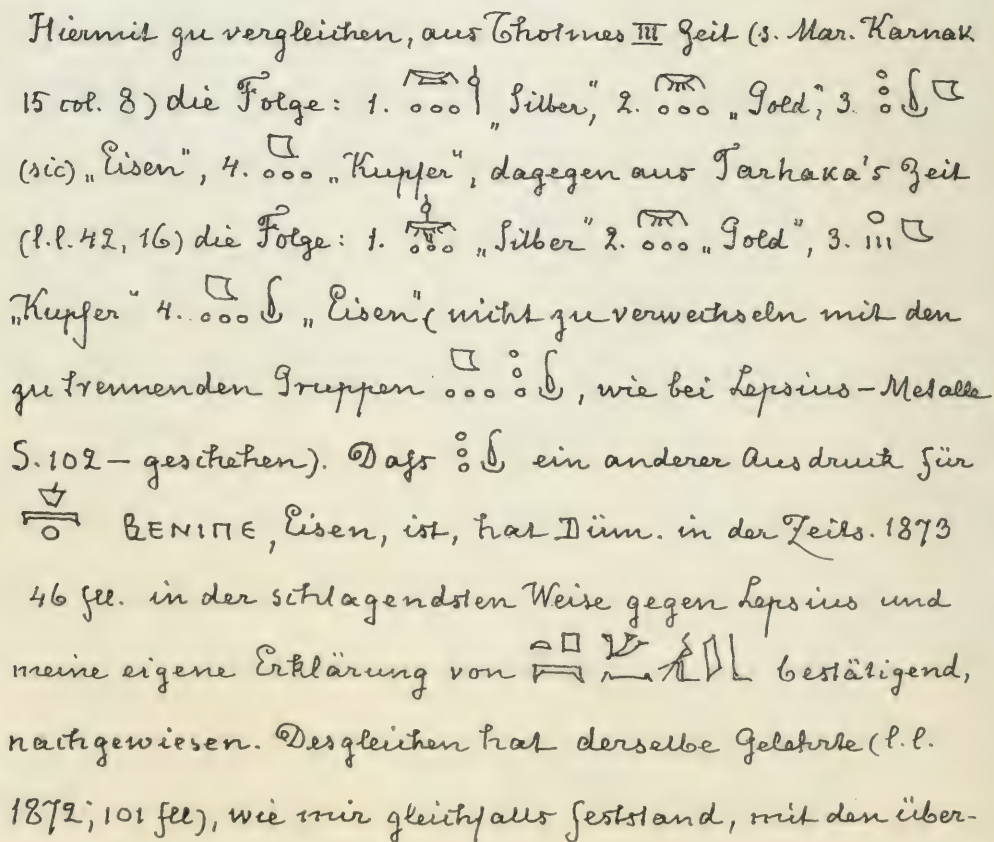 Hiermit zu vergleichen, aus Thotmes III Zeit (s. Mar. Karnak
15 col. 8) die Folge: 1. „Silber“, 2. „Gold“, 3.
(sic) „Eisen“, 4. „Kupfer“, dagegen aus Tarhaka's Zeit
(l.l. 42, 16) die Folge: 1. „Silber“ 2. „Gold“, 3.
„Kupfer“ 4. „Eisen“ (nicht zu verwechseln mit den
zu trennenden Gruppen , wie bei Lepsius – Metalle
S. 102 – geschehen). Dass ein anderer Ausdruck für
ⲂⲈⲚⲒⲠⲈ, Eisen, ist, hat Düm. in der Zeits. 1873
46 fll. in der schlagendsten Weise gegen Lepsius und
meine eigene Erklärung von bestätigend,
nachgewiesen. Desgleichen hat derselbe Gelehrte (l.l.
1872; 101 fll), wie mir gleichfalls feststand, mit den über-